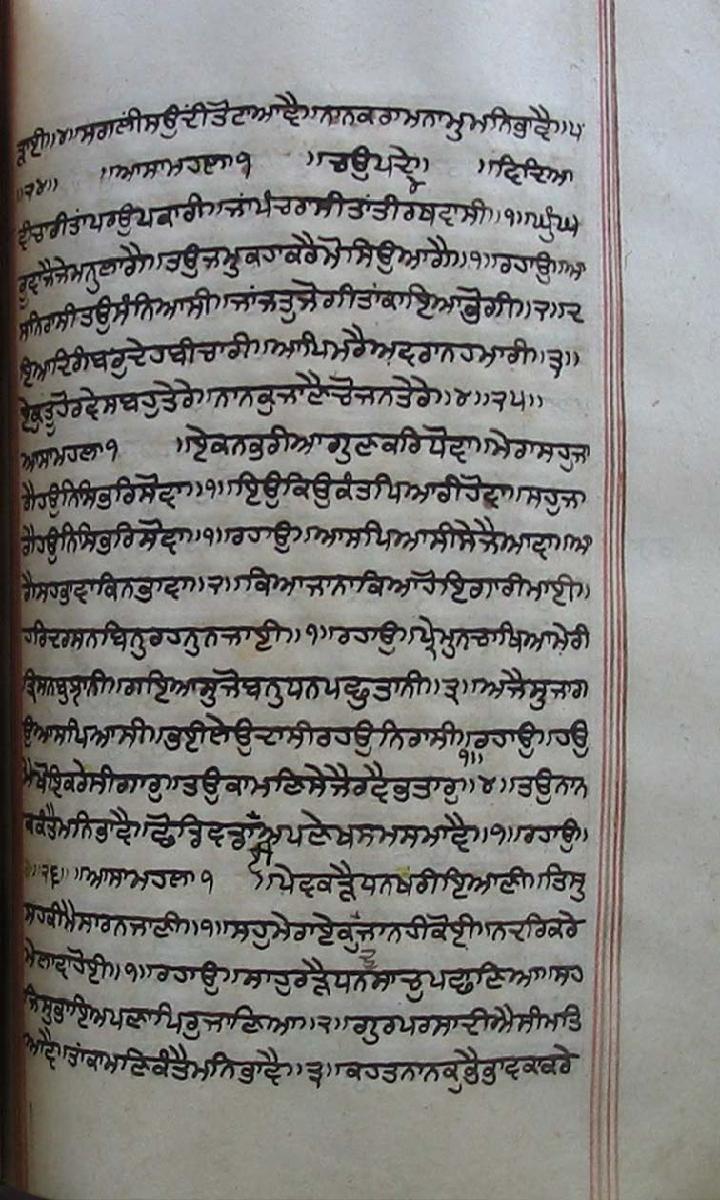 ਡਾਈ॥੪॥ਸਗਲੀਸਉਦੀਤੋਟਾਆਵੈ॥ਨਾਨਕਰਾਮਨਾਮੁਮਨਿਭਾਵੈ॥੫
॥੨੪॥ ॥ਆਸਾਮਹਲਾ੧ ॥ਚਉਪਦੇ॥ ॥ਵਿਦਿਆ
ਵੀਚਾਰੀਤਾਂਪਰਉਪਕਾਰੀ॥ਜਾਂਪੰਚਰਾਸੀਤਾਂਤੀਰਥਵਾਸੀ॥੧॥ਘੁੰਘ
ਰੂਵਾਜੈਜੇਮਨੁਲਾਗੈ॥ਤਉਜਮੁਕਹਾਕਰੈਮੋਸਿਉਆਗੈ॥੧॥ਰਹਾਉ॥ਆ
ਸਨਿਰਾਸੀਤਉਸੰਨਿਆਸੀ॥ਜਾਂਜਤੁਜੋਗੀਤਾਂਕਾਇਆਭੋਗੀ॥੨॥ਦ
ਇਆਦਿਗੰਬਰੁਦੇਹਬੀਚਾਰੀ॥ਆਪਿਮਰੈਅਵਰਾਨਹਮਾਰੀ॥੩॥
ਏਕੁਤੂਹੋਰਵੇਸਬਹੁਤੇਰੇ॥ਨਾਨਕੁਜਾਣੈਚੋਜਨਤੇਰੇ॥੪॥੨੫॥
ਆਸਾਮਹਲਾ੧ ॥ਏਕਨਭਰੀਆਗੁਣਕਰਿਧੋਵਾ॥ਮੇਰਾਸਹੁਜਾ
ਗੈਹਉਨਿਸਿਭਰਿਸੋਵਾ॥੧॥ਇਉਕਿਉਕੰਤਪਿਆਰੀਹੋਵਾ॥ਸਹੁਜਾ
ਗੈਹਉਨਿਸਿਭਰਿਸੋਵਾ॥੧॥ਰਹਾਉ॥ਆਸਪਿਆਸੀਸੇਜੈਆਵਾ॥ਆ
ਗੈਸਹਭਾਵਾਕਿਨਭਾਵਾ॥੨॥ਕਿਆਜਾਨਾਕਿਆਹੋਇਗਾਰੀਮਾਈ॥
ਹਰਿਦਰਸਨਬਿਨੁਰਹਨੁਨਜਾਈ॥੧॥ਰਹਾਉ॥ਪ੍ਰੇਮੁਨਚਾਖਿਆਮੇਰੀ
ਤ੍ਰਿਸਨਬੁਝਾਨੀ॥ਗਇਆਸੁਜੋਬਨੁਧਨਪਛੁਤਾਨੀ॥੩॥ਅਜੈਸੁਜਾਗ
ਉਆਸਪਿਆਸੀ॥ਭਈਲੇਉਦਾਸੀਰਹਉਨਿਰਾਸੀ॥੧॥ਰਹਾਉ॥ਹਉ
ਮੈਖੋਇਕਰੇਸੀਗਾਰੁ॥ਤਉਕਾਮਣਿਸੇਜੈਰਵੈਭਤਾਰੁ॥੪॥ਤਉਨਾਨ
ਕਕੰਤੈਮਨਿਭਾਵੈ॥ਛੋਡਿਵਡਾਈਅਪਣੇਖਸਮਸਮਾਵੈ॥੧॥ਰਹਾਉ॥
॥੨੬॥ਆਸਾਮਹਲਾ੧ ॥ਪੇਵਕੜੈਧਨਖਰੀਇਆਣੀ॥ਤਿਸੁ
ਸਹਕੀਮੈਸਾਰਨਜਾਣੀ॥੧॥ਸਹੁਮੇਰਾਏਕੁਦੂਜਾਨਹੀਕੋਈ॥ਨਦਰਿਕਰੇ
ਮੇਲਾਵਾਹੋਈ॥੧॥ਰਹਾਉ॥ਸਾਹੁਰੜੈਧਨਸਾਚੁਪਛਾਣਿਆ॥ਸਹ
ਜਿਸੁਭਾਇਅਪਣਾਪਿਰੁਜਾਣਿਆ॥੨॥ਗੁਰਪਰਸਾਦੀਐਸੀਮਤਿ
ਆਵੈ॥ਤਾਂਕਾਮਣਿਕੰਤੈਮਨਿਭਾਵੈ॥੩॥ਕਹਤਨਾਨਕੁਭੈਭਾਵਕਾਕਰੇ